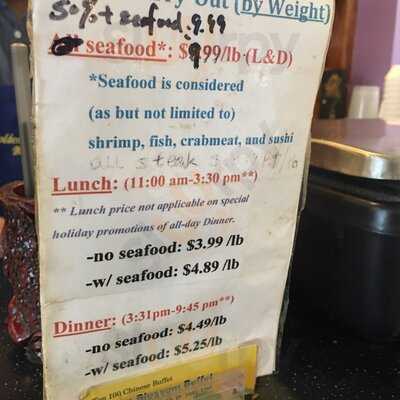 50% + seafood 9.99
Out (by Weight)
All seafood*: $9.99/lb (L&D)
*Seafood is considered
(as but not limited to)
shrimp, fish, crabmeat, and sushi
all steak
Lunch: (11:00 am-3:30 pm**)
** Lunch price not applicable on special
holiday promotions of all-day Dinner.
-no seafood: $3.99 /lb
-w/ seafood: $4.89 /lb
Dinner: (3:31pm-9:45 pm**)
-no seafood: $4.49/lb
-w/ seafood: $5.25/lb
Top 100 Chinese Buffet
Blossom Buffet